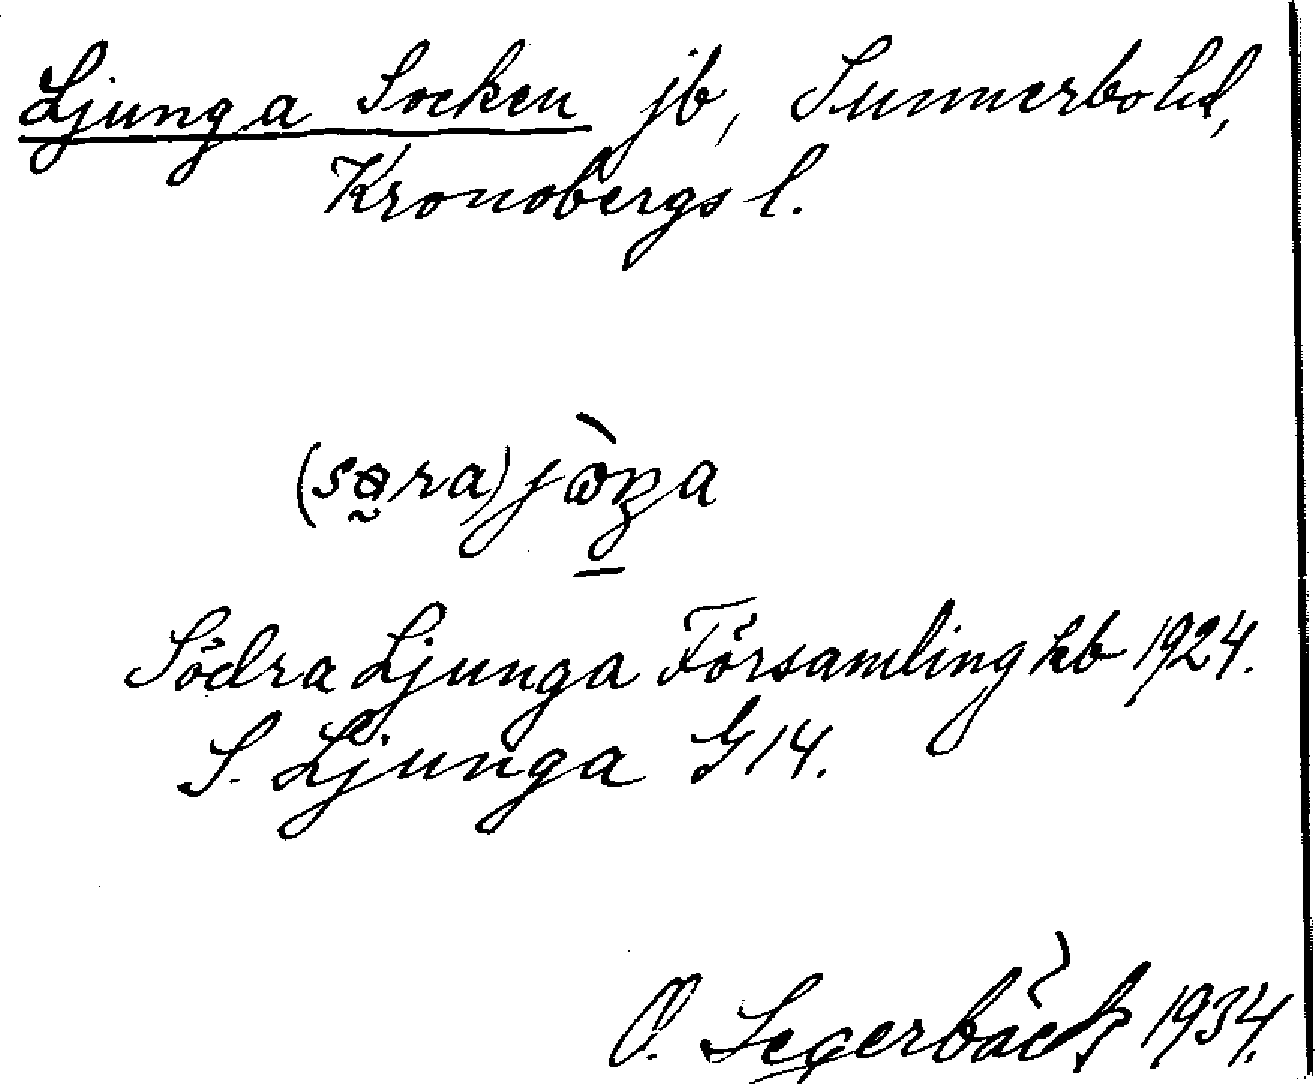 Ljunga Socken jb, Sunnerbo hd,
Kronobergs l.
(sɵ̰ra) jὼŋa
Södra Ljunga Församling kb 1924.
S. Ljunga G14.
O. Segerbäck 1934.